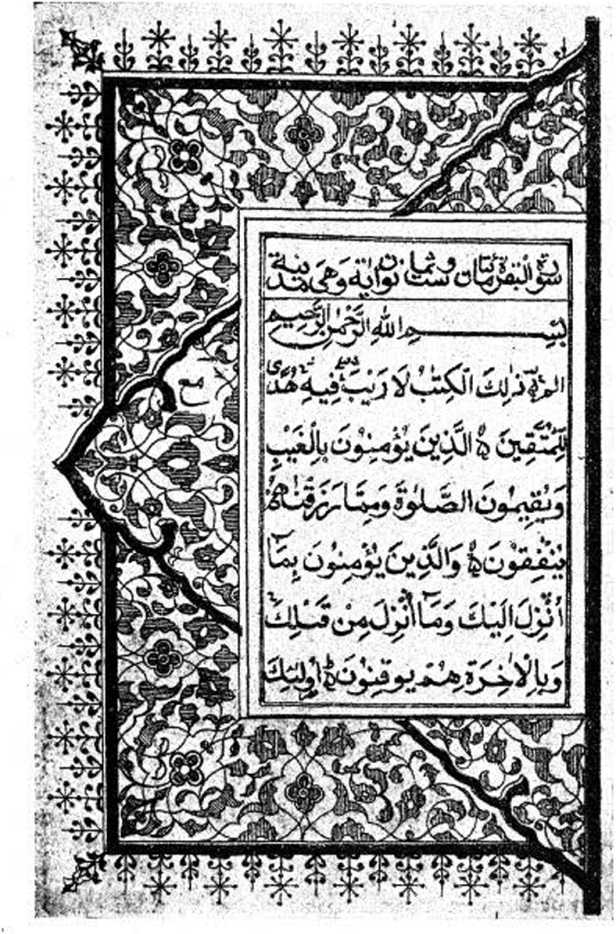 سورة البقرة مائتان وست وثمانون اية وهي مدنية
بِسْمِ اللهِ الرَّحْمٰنِ الرَّحِيمِ
الم ذٰلِكَ الْكِتٰبُ لَا رَيْبَ فِيهِ هُدًى
لِلْمُتَّقِينَ الَّذِينَ يُؤْمِنُونَ بِالْغَيْبِ
وَيُقِيمُونَ الصَّلٰوةَ وَمِمَّا رَزَقْنٰهُمْ
يُنْفِقُونَ وَالَّذِينَ يُؤْمِنُونَ بِمَا
أُنْزِلَ إِلَيْكَ وَمَا أُنْزِلَ مِنْ قَبْلِكَ
وَبِالْاٰخِرَةِ هُمْ يُوقِنُونَ أُولٰئِكَ
مع